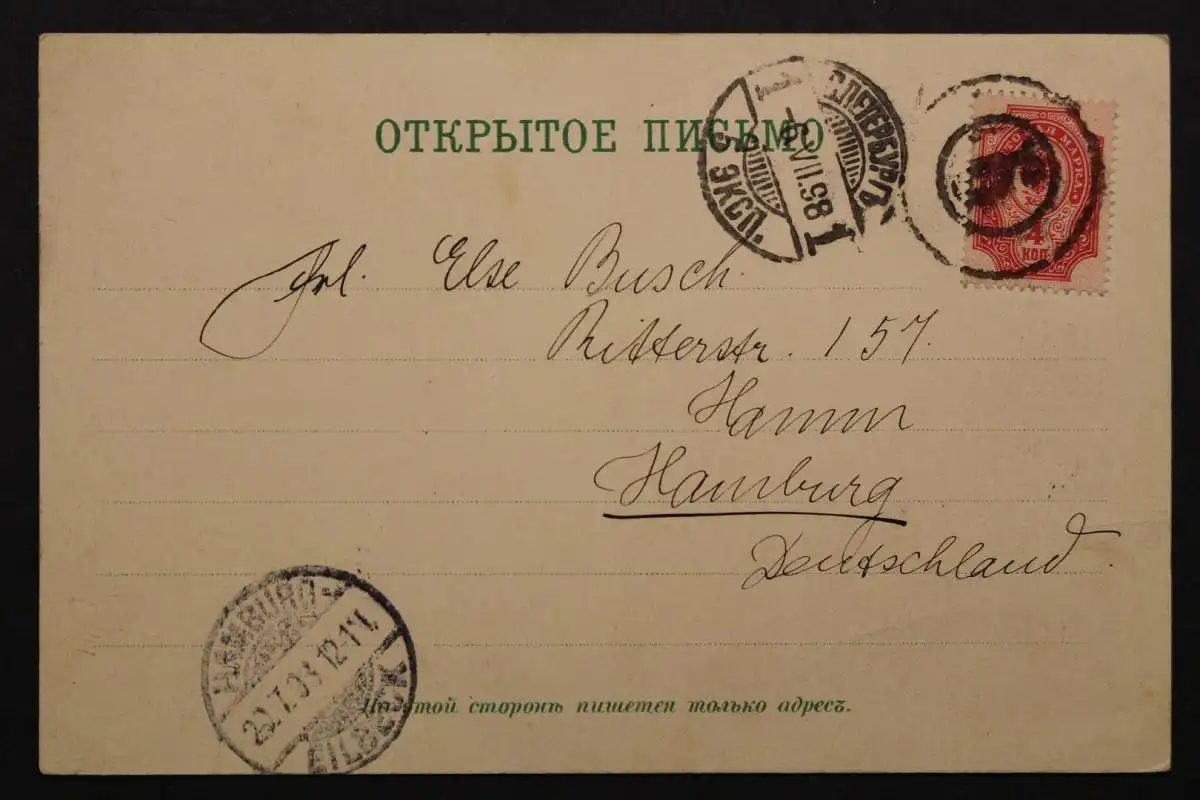 ОТКРЫТОЕ ПИСЬМО
С.ПЕТЕРБУРГЪ
1
VII.98
1
5 ЭКСП.
МАРКА
4
КОП
Frl. Else Busch.
Ritterstr. 157.
Hamm
Hamburg
Deutschland.
HAMBURG-
12-1N.
EILBECK
На этой сторонѣ пишется только адресъ.